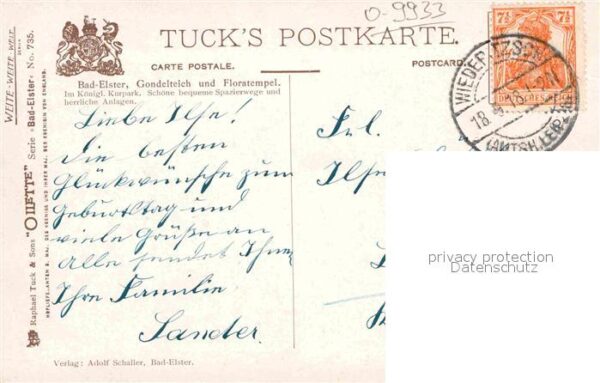 O-9933
TUCK'S POSTKARTE.
CARTE POSTALE.
POSTCARD.
7½ 7½
DEUTSCHES REICH
WIEDERITZSCH
18.
(AMTSH.LEIPZIG)
WEITE-WEITE-WELT
Raphael Tuck & Sons "OILETTE" Serie »Bad-Elster« No. 735.
HOFLIEFERANTEN S. MAJ. DES KOENIGS UND IHRER MAJ. DER KOENIGIN VON ENGLAND.
Bad-Elster, Gondelteich und Floratempel.
Im Königl. Kurpark. Schöne bequeme Spazierwege und
herrliche Anlagen.
Liebe Ilse!
Die besten
Glückwünsche zum
Geburtstag und
viele Grüße an
Alle sendet Ihnen
Ihre Familie
Sander.
Frl.
Ilse
privacy protection
Datenschutz
Verlag: Adolf Schaller, Bad-Elster.